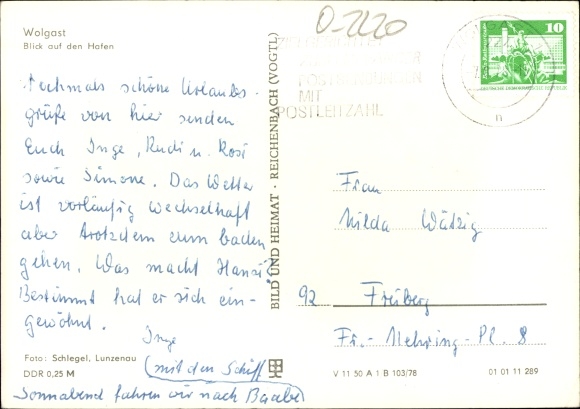 Wolgast
Blick auf den Hafen
0-2220
Nochmals schöne Urlaubs-
grüße von hier senden
Euch Inge, Rudi u. Rosi
sowie Simone. Das Wetter
ist vorläufig wechselhaft
aber trotzdem zum baden
gehen. Was macht Hansi?
Bestimmt hat er sich ein-
gewöhnt.
Inge
(mit den Schiff
Sonnabend fahren wir nach Baabe)
Foto: Schlegel, Lunzenau
DDR 0,25 M
BILD UND HEIMAT · REICHENBACH (VOGTL)
MIT
POSTLEITZAHL
n
10
DEUTSCHE DEMOKRATISCHE REPUBLIK
Frau
Hilda Wätzig
92 Freiberg
Fr.-Mehring-Pl. 8
V 11 50 A 1 B 103/78
01 01 11 289